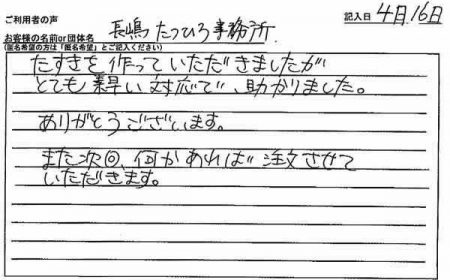 ご利用者の声
記入日 4月16日
お客様の名前or団体名 長嶋たつひろ事務所
(匿名希望の方は「匿名希望」とご記入ください)
たすきを作っていただきましたが
とても素早い対応で、助かりました。
ありがとうございます。
また次回、何かあれば注文させて
いただきます。